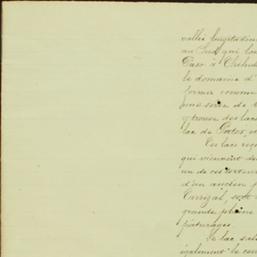 vallée longitudin
au Sud qui lon
Paso à Chihua
le domaine d
former comme
une série de b
trouve des lacs
lac de Patos, 
Ces lacs reç
qui viennent de
un de ces
d'un ancien
Carrizal, 
grande plaine
pâturages.
Le lac sal
également le cou